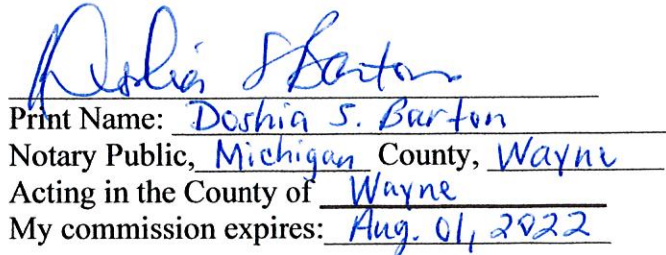 Doshia S Barton
Print Name: Doshia S. Barton
Notary Public, Michigan County, Wayne
Acting in the County of Wayne
My commission expires: Aug. 01, 2022